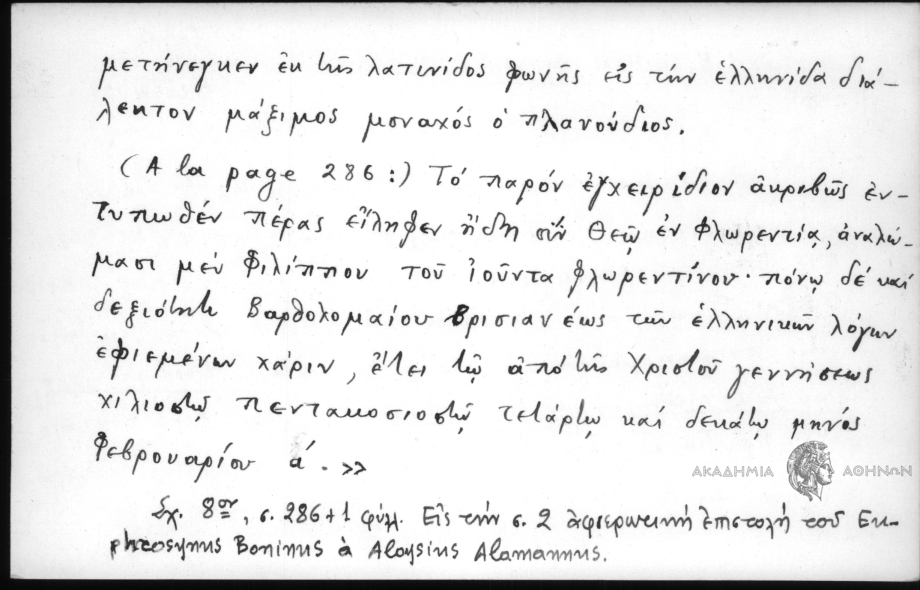 μετήνεγκεν ἐκ τῆς λατινίδος φωνῆς εἰς τήν ἑλληνίδα διά-
λεκτον μάξιμος μοναχός ὁ πλανούδιος.
(A la page 286:) Τό παρόν ἐγχειρίδιον ἀκριβῶς ἐν-
τυπωθέν πέρας εἴληφεν ἤδη σύν Θεῷ ἐν Φλωρεντίᾳ, ἀναλώ-
μασι μέν Φιλίππου τοῦ ἰούντα φλωρεντίνου· πόνῳ δέ καί
δεξιότητι Βαρθολομαίου Βρισιανέως τῶν ἑλληνικῶν λόγων
ἐφιεμένων χάριν, ἔτει τῷ ἀπό τῆς Χριστοῦ γεννήσεως
χιλιοστῷ πεντακοσιοστῷ τετάρτῳ καί δεκάτῳ μηνός
Φεβρουαρίου ά. »
ΑΚΑΔΗΜΙΑ ΑΘΗΝΩΝ
Σχ. 8ον, σ. 286+1 φύλλ. Εἰς τήν σ. 2 ἀφιερωτική ἐπιστολή τοῦ Eu-
phrosynus Boninus à Aloysius Alamannus.